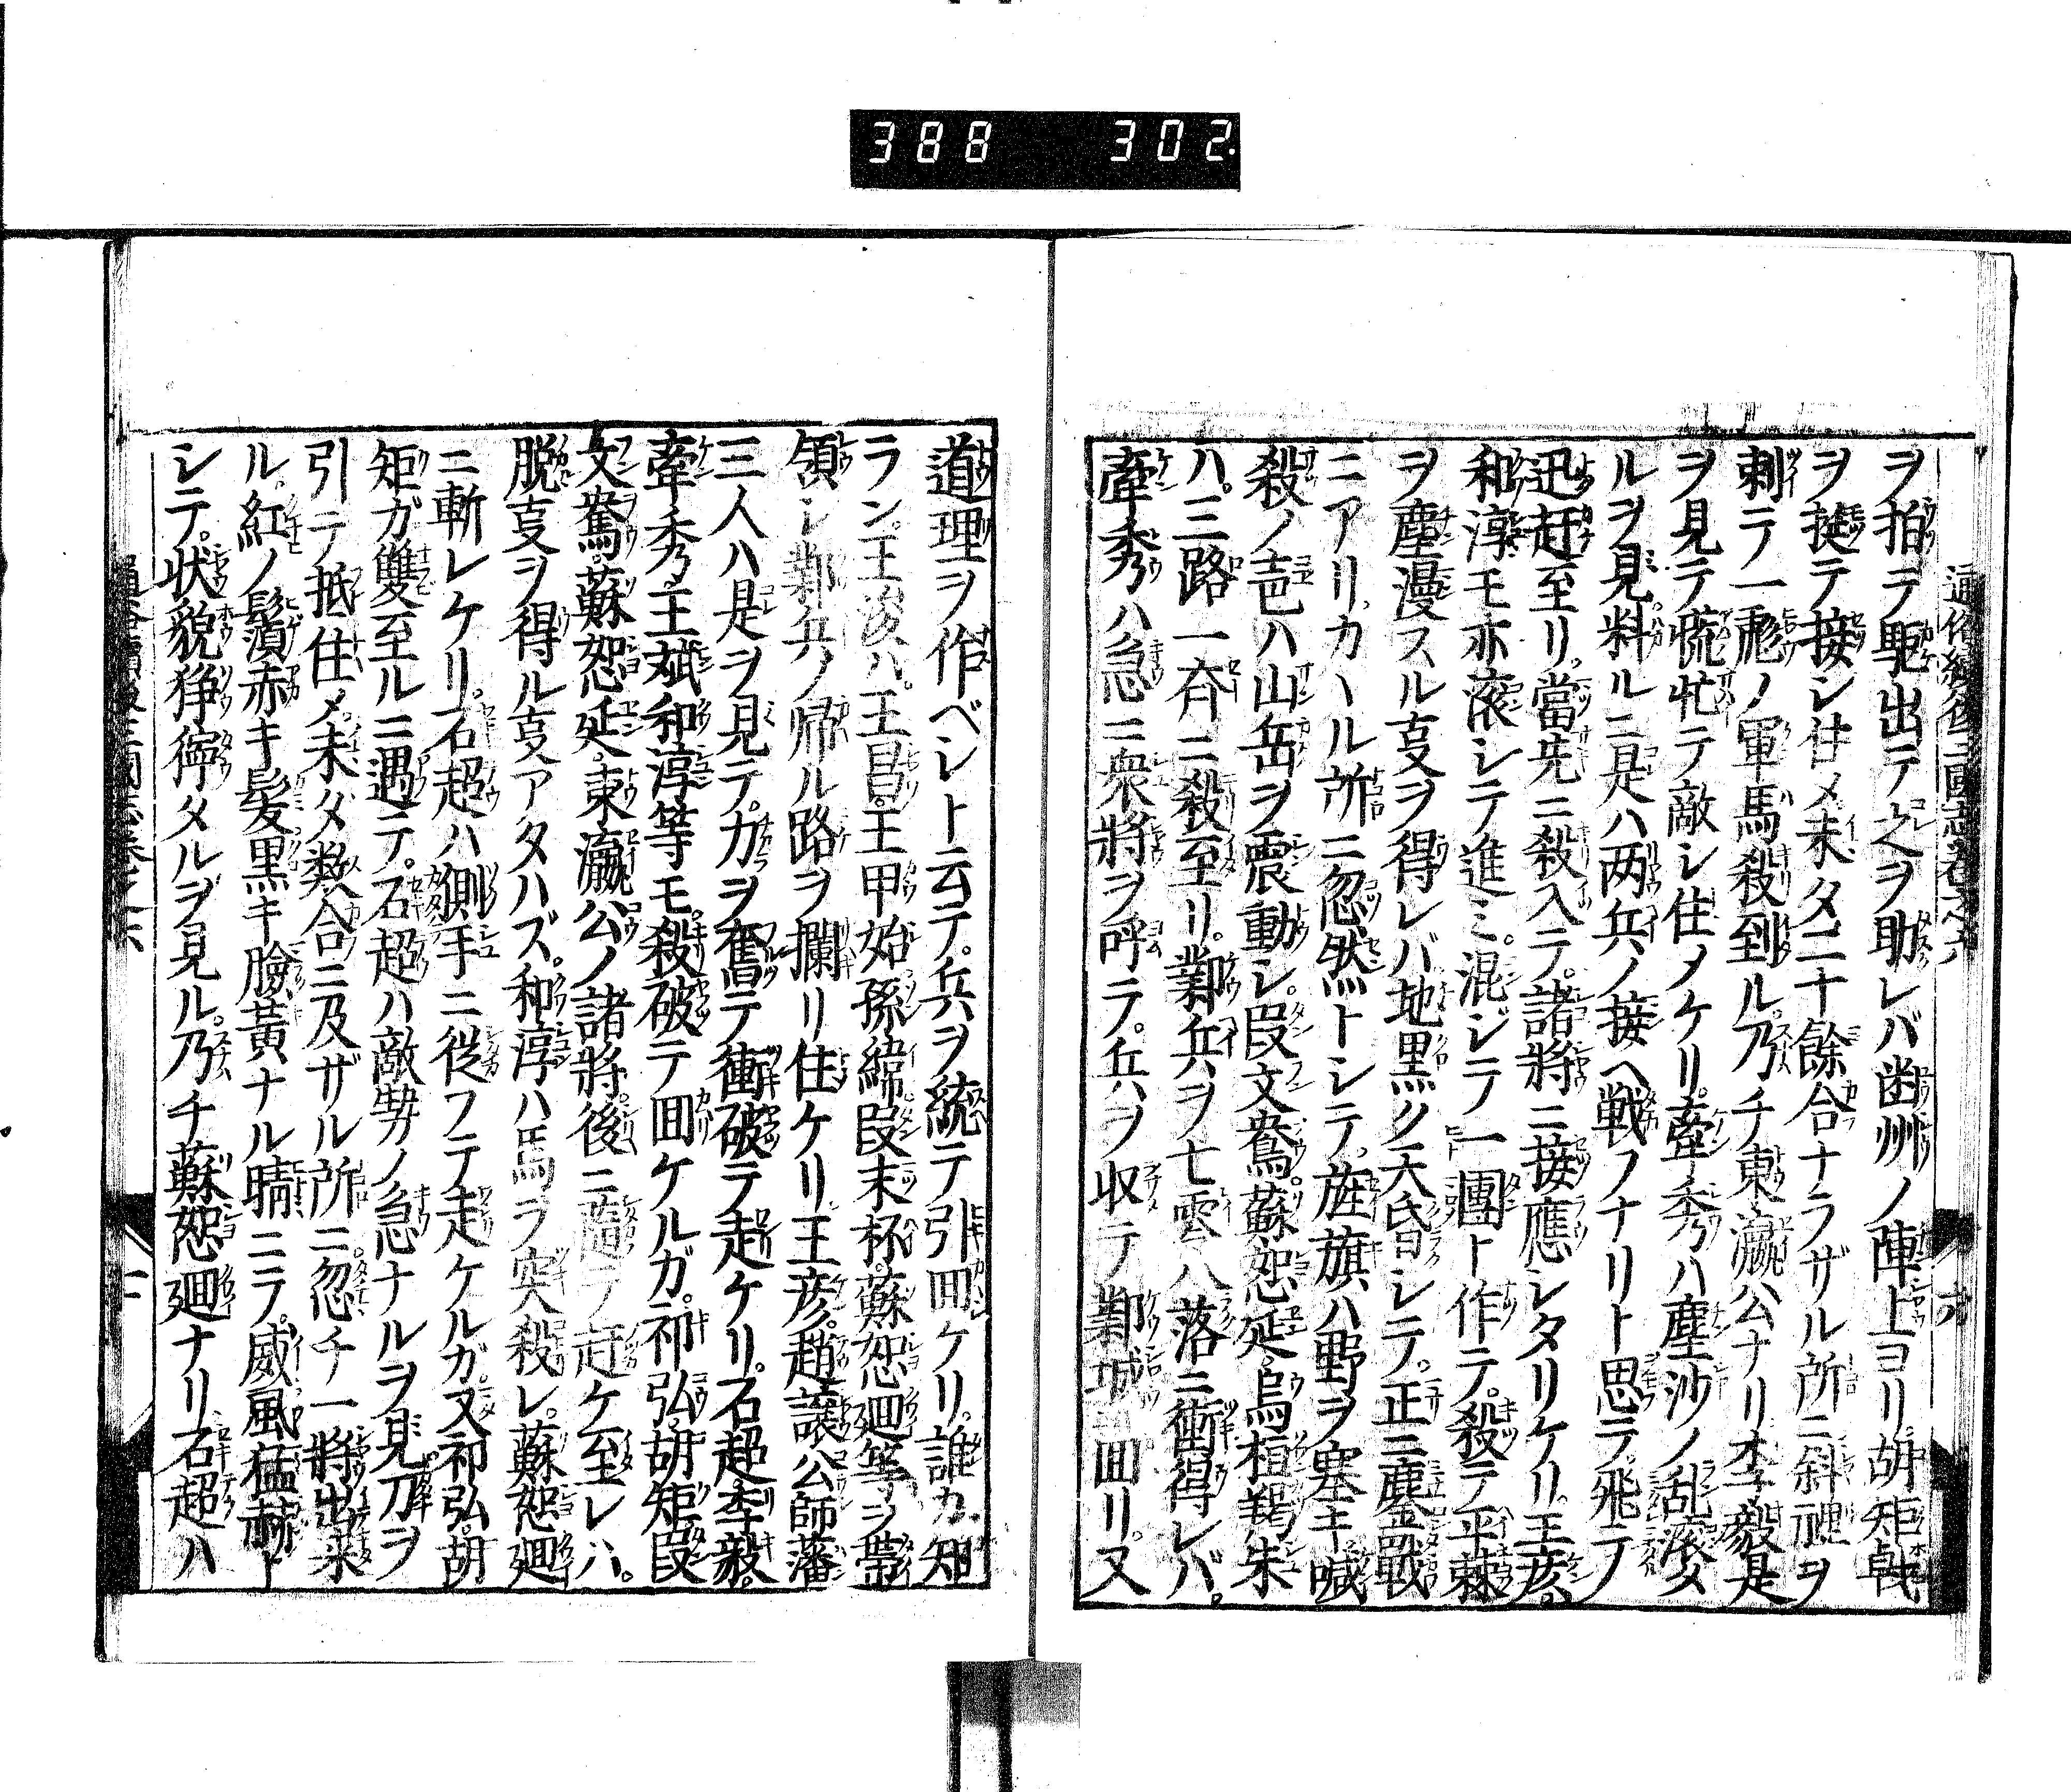 388 302
通俗續後三國志卷之六
六
ヲ拍テ駆出テ之ヲ助レバ幽州ノ陣上ヨリ胡矩戟
ヲ挺テ接シ住メ未タ二十餘合ナラザル所ニ斜裡ヲ
刺テノ一彪ノ軍馬殺到ル乃チ東瀛公ナリ李毅是
ヲ見テ慌忙テ敵シ住メケリ牽秀ハ塵沙ノ乱滾ス
ルヲ見料ルニ是ハ两兵ノ接ヘ戦フナリト思テ飛テ
迅赶至リ當先ニ殺入テ諸將ニ接應シタリケリ王彦
和淳モ亦滚シテ進ミ混ジテ一團ト作テ殺テ平棘
ヲ塵漫スル㕝ヲ得レバ地黒ク天昏シテ正ニ鏖戰
ニアリカヽル所ニ忽然トシテ旌旗ハ野ヲ塞キ喊
殺ノ声ハ山岳ヲ震動シ段文鴦蘇恕延烏桓羯朱
ハ三路一斉ニ殺至リ鄴兵ヲ七零八落ニ衝得レバ
牽秀ハ急ニ衆將ヲ呼テ兵ヲ収テ鄴城ニ回リ又
道理ヲ作ベシト云テ兵ヲ統テ引回ケリ誰カ知
ラン王浚ハ王昌王甲始孫緯段末杯蘇恕廻等ヲ帶
領シ鄴兵ノ帰ル路ヲ攔リ住ケリ王彦趙譲公師藩
三人ハ是ヲ見テ力ヲ奮テ衝破テ走ケリ石超李毅
牽秀王斌和淳等モ殺破テ回ケルガ祁弘胡矩段
文鴦蘇恕延東瀛公ノ諸將後ニ随テ赶ケ至レハ
脱㕝ヲ得ル㕝アタハズ和淳ハ馬ヲ突殺レ蘇恕廻
ニ斬レケリ石超ハ側手ニ従フテ走ケルガ又祁弘胡
矩ガ雙至ルニ遇テ石超ハ敵勢ノ急ナルヲ見刀ヲ
引テ抵住メ未ダ数合ニ及ザル所ニ忽チ一將出来
ル紅ノ鬚赤キ髪黒キ臉黄ナル睛ニテ威風猛赫ト
シテ状貌猙獰タルヲ見ル乃チ蘇恕廻ナリ石超ハ